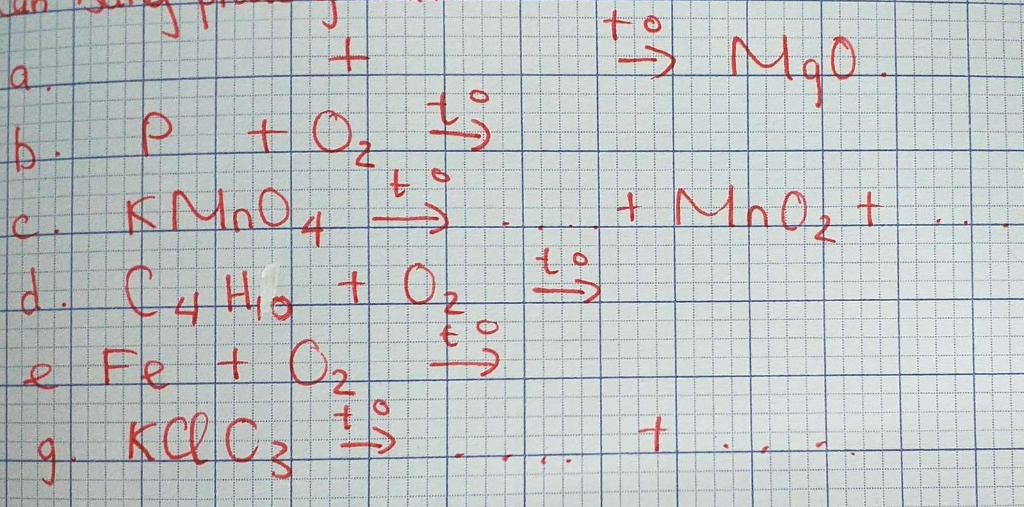 a. + t° → MgO.
b. P + O₂ t° →
c. KMnO₄ t° → ..... + MnO₂ + ....
d. C₄H₁₀ + O₂ t° →
e Fe + O₂ t° →
g. KClC₃ t° → ..... + .....